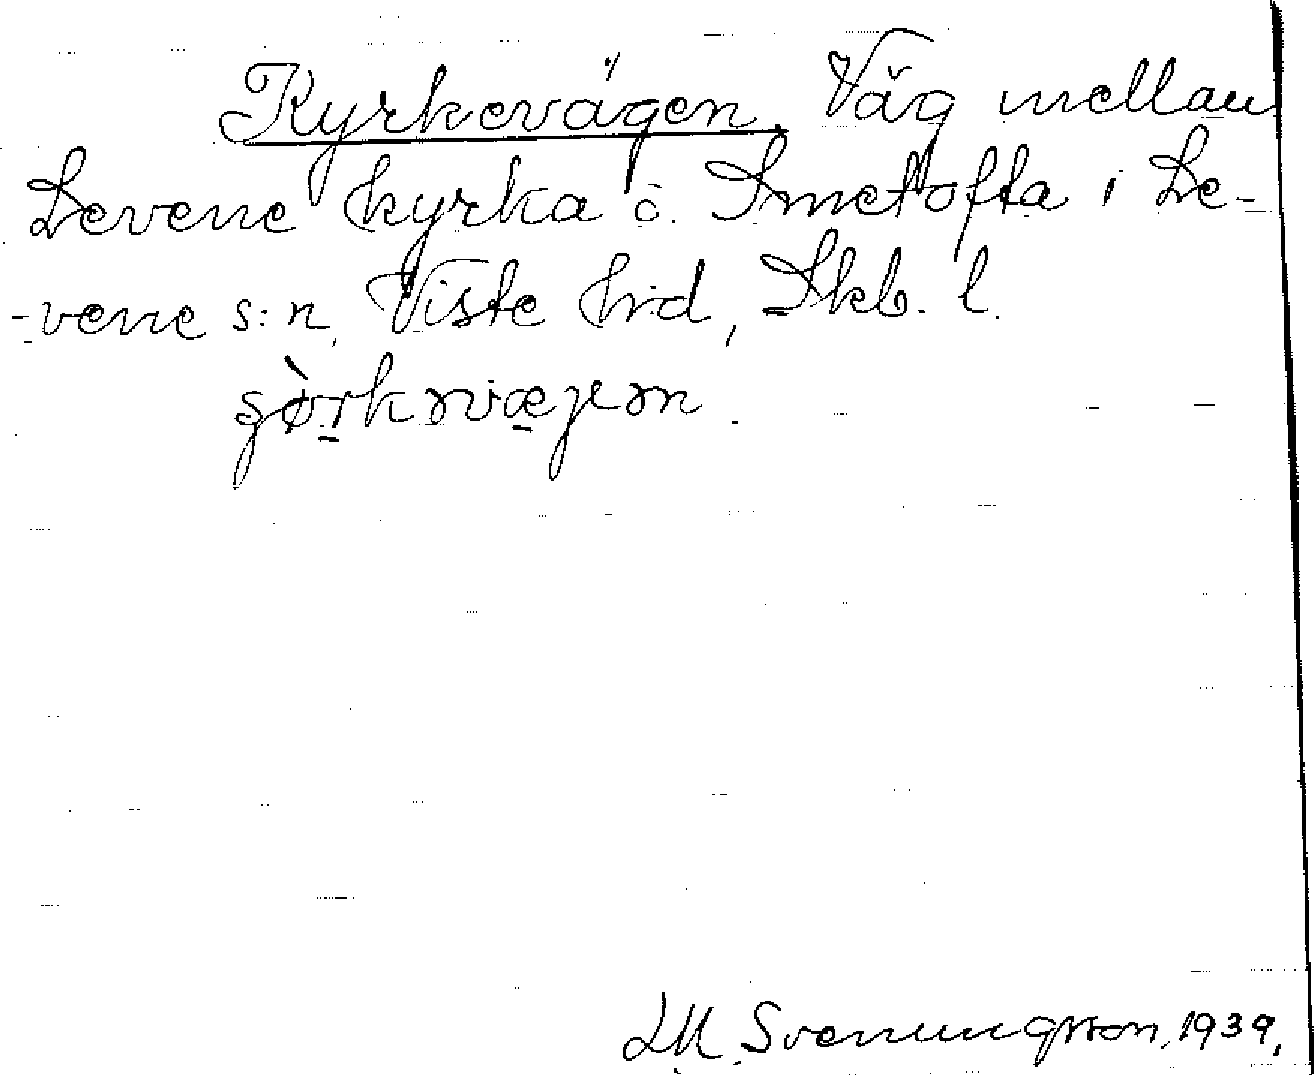 Kyrkevägen. Väg mellan
Levene kyrka o. Smetofta i Le-
-vene s:n, Viste hrd, Skb. l.
Svenungsson, 1939.